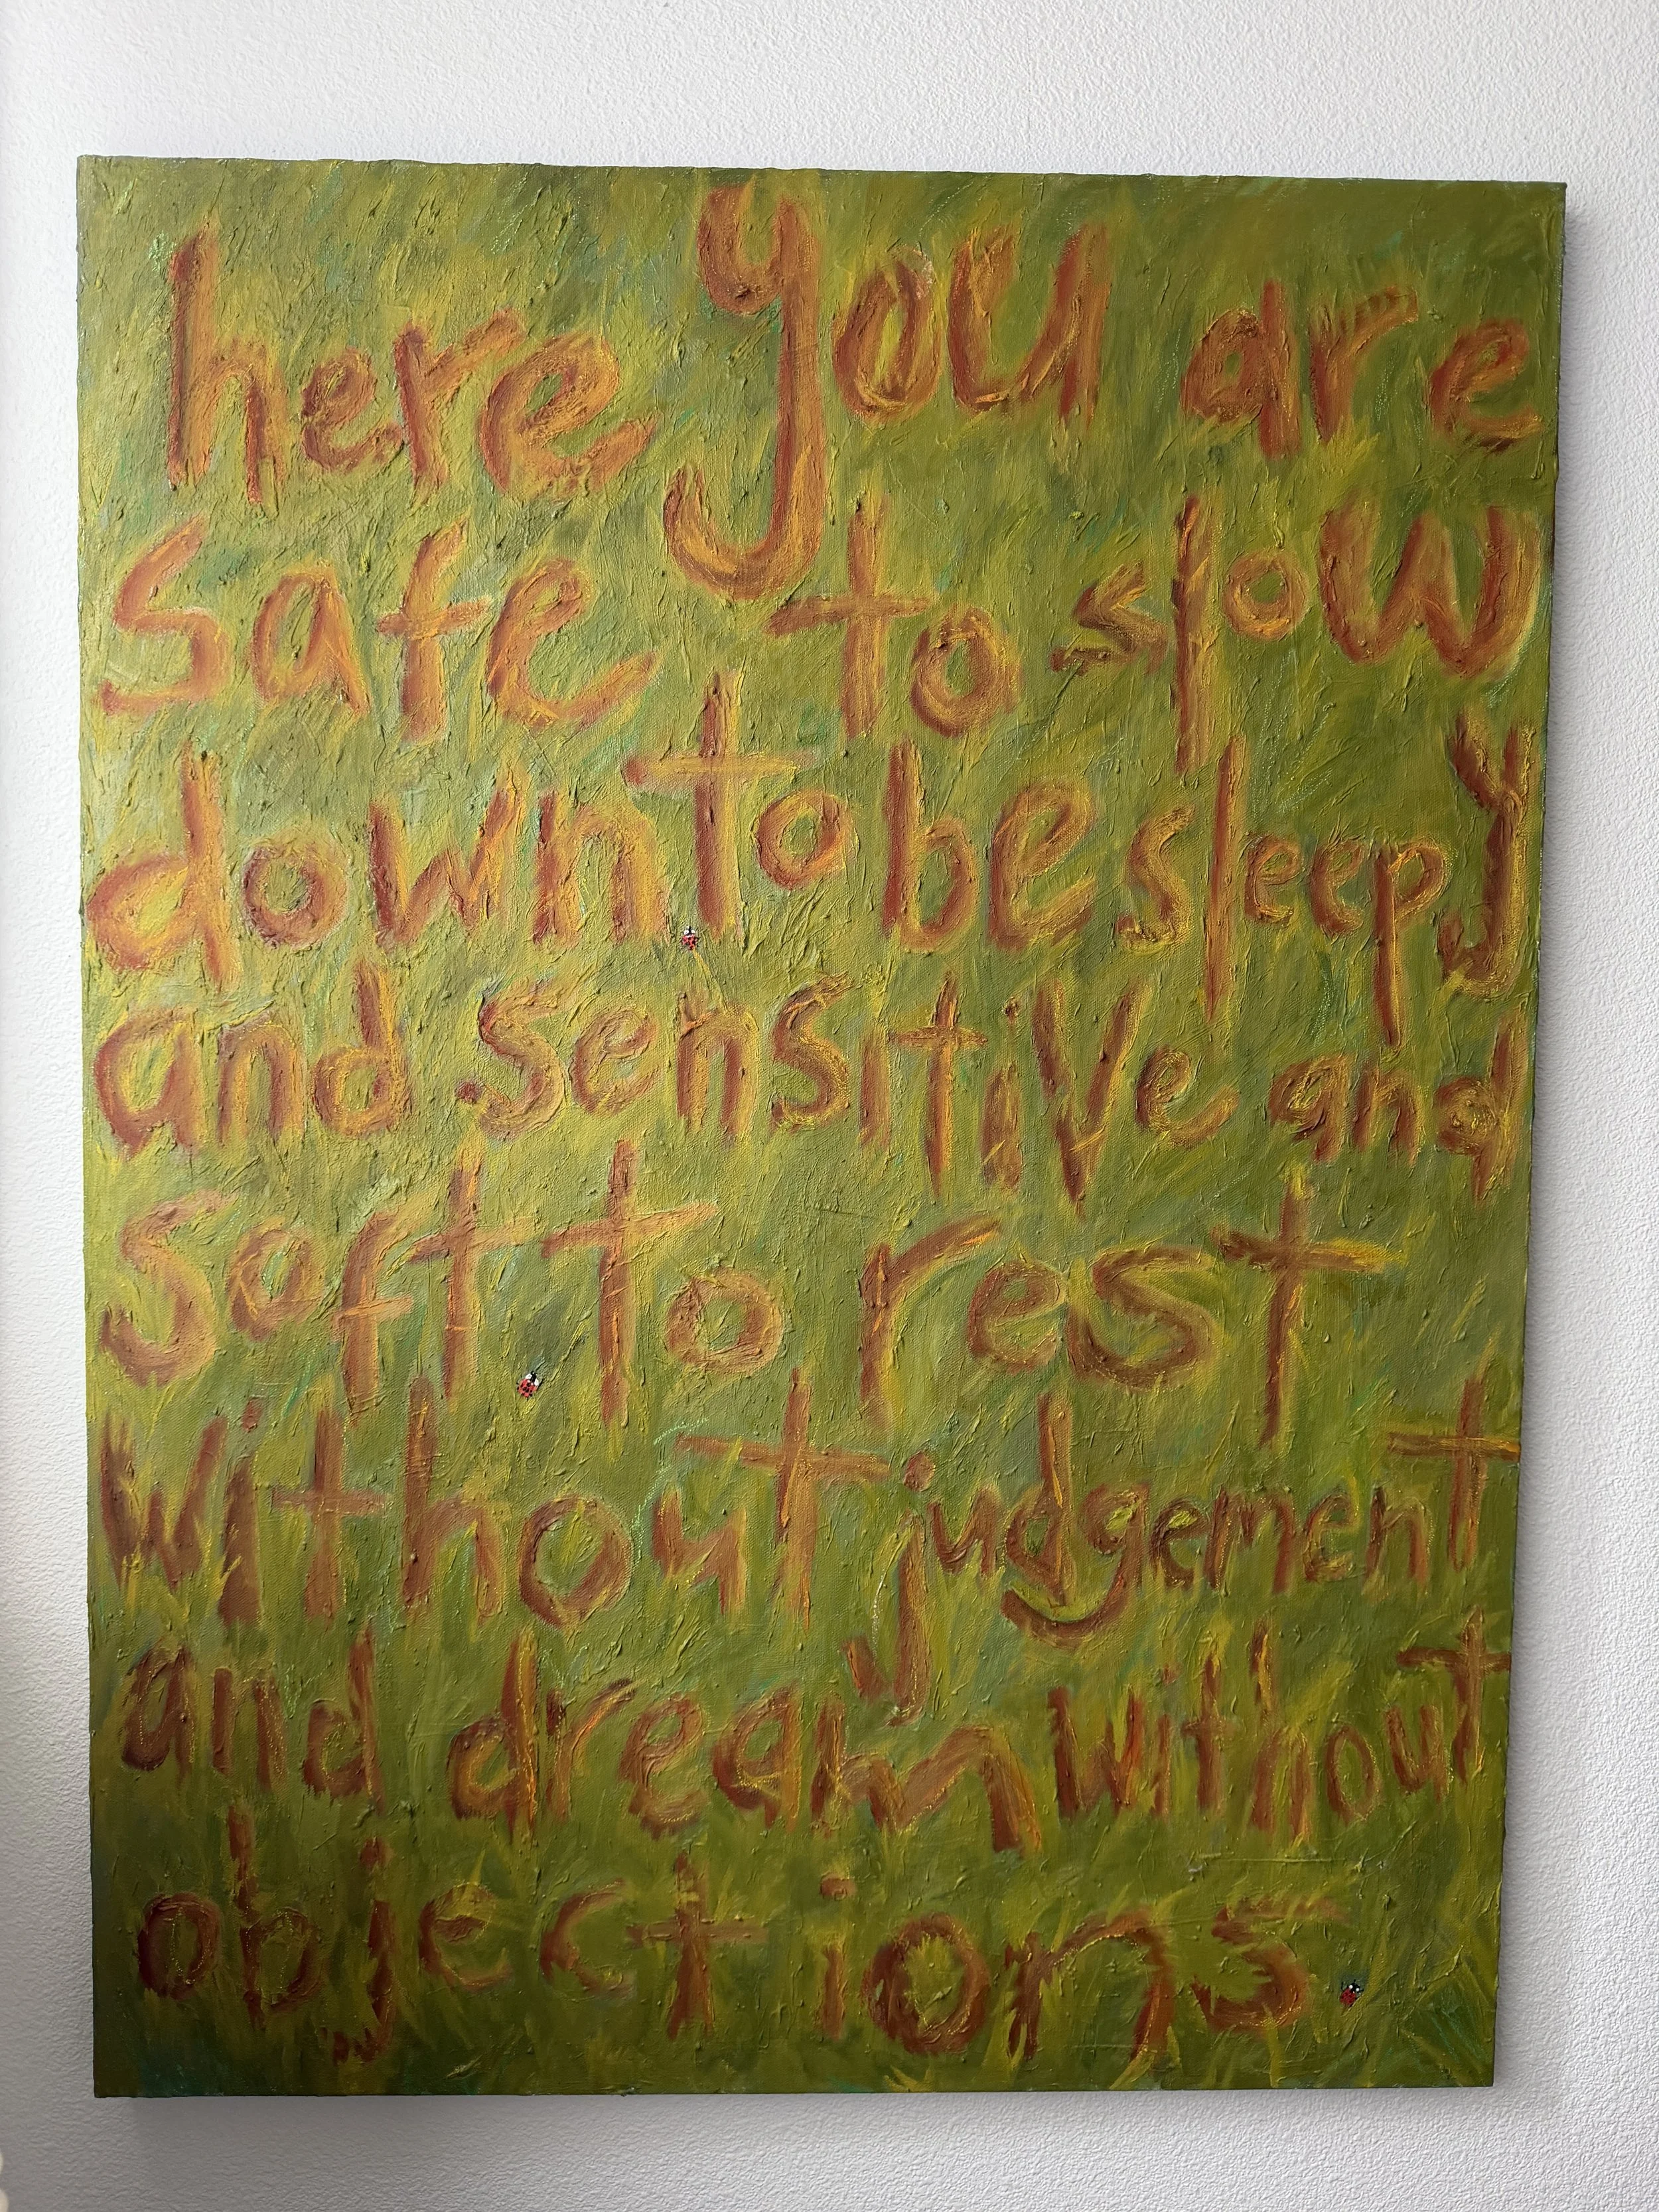 here you are
safe to slow
down to be sleepy
and sensitive and
soft to rest
without judgement
and dream without
objections.